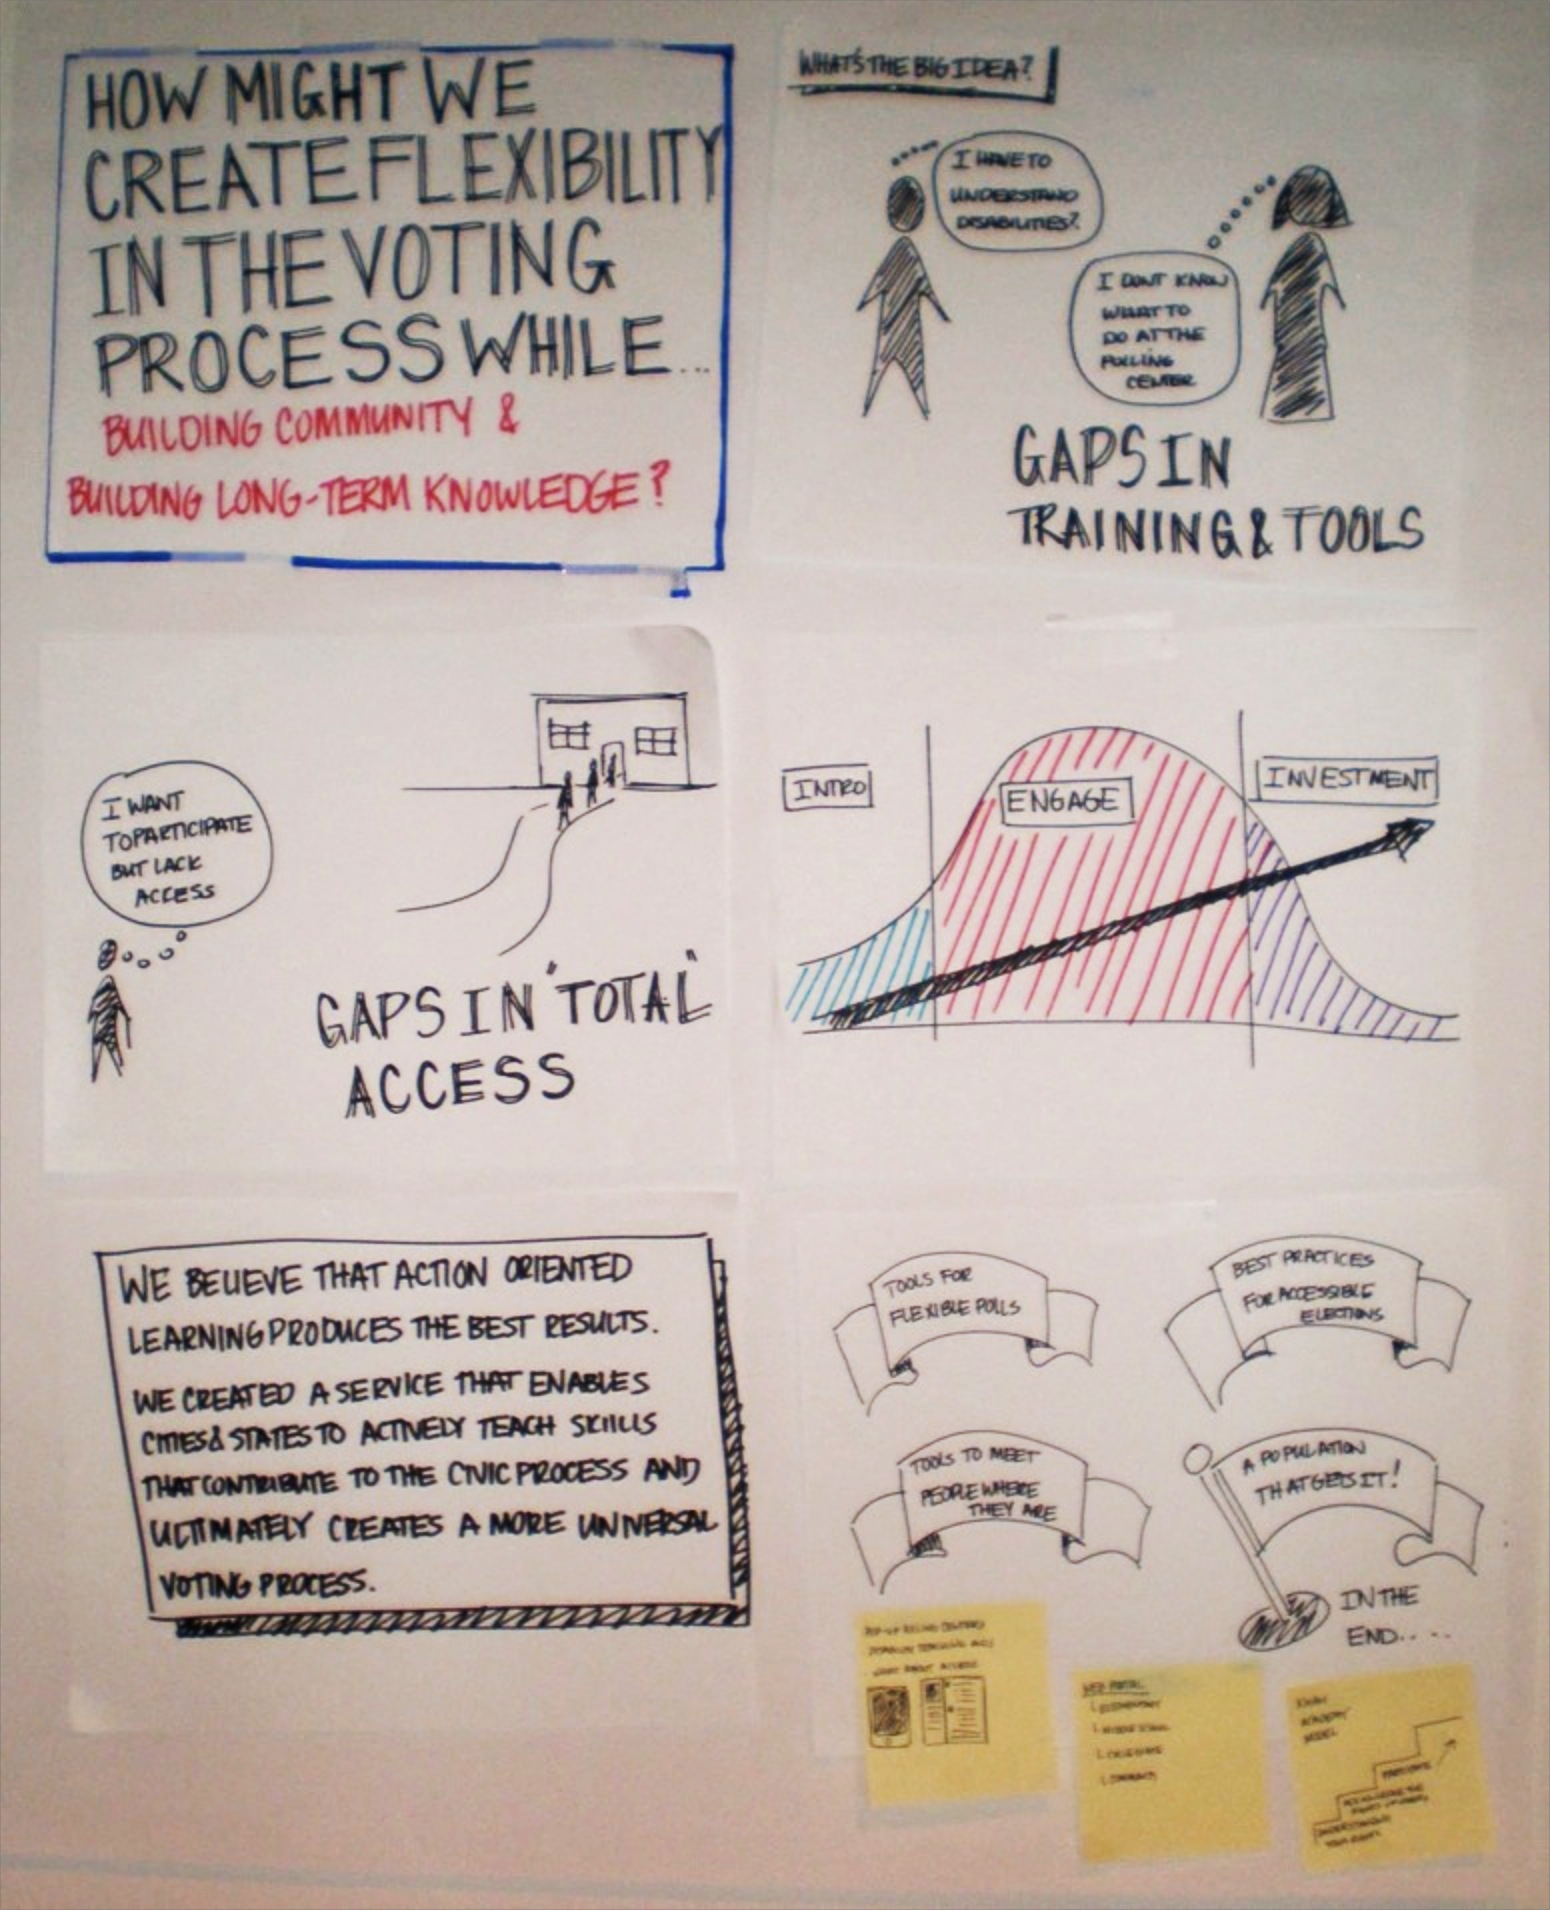 HOW MIGHT WE
CREATE FLEXIBILITY
IN THE VOTING
PROCESS WHILE...
BUILDING COMMUNITY &
BUILDING LONG-TERM KNOWLEDGE?
WHAT'S THE BIG IDEA?
I HAVE TO
UNDERSTAND
DISABILITIES?
I DONT KNOW
WHAT TO
DO AT THE
POLLING
CENTER
GAPS IN
TRAINING & TOOLS
I WANT
TO PARTICIPATE
BUT LACK
ACCESS
GAPS IN "TOTAL"
ACCESS
INTRO
ENGAGE
INVESTMENT
WE BELIEVE THAT ACTION ORIENTED
LEARNING PRODUCES THE BEST RESULTS.
WE CREATED A SERVICE THAT ENABLES
CITIES & STATES TO ACTIVELY TEACH SKILLS
THAT CONTRIBUTE TO THE CIVIC PROCESS AND
ULTIMATELY CREATES A MORE UNIVERSAL
VOTING PROCESS.
TOOLS FOR
FLEXIBLE POLLS
BEST PRACTICES
FOR ACCESSIBLE
ELECTIONS
TOOLS TO MEET
PEOPLE WHERE
THEY ARE
A POPULATION
THAT GETS IT!
IN THE
END....
WEB PORTAL
1. ELEMENTARY
1. MIDDLE SCHOOL
1. COLLEGIATE
1. COMMUNITY
KHAN
ACADEMY
MODEL
UNDERSTANDING
YOUR RIGHTS